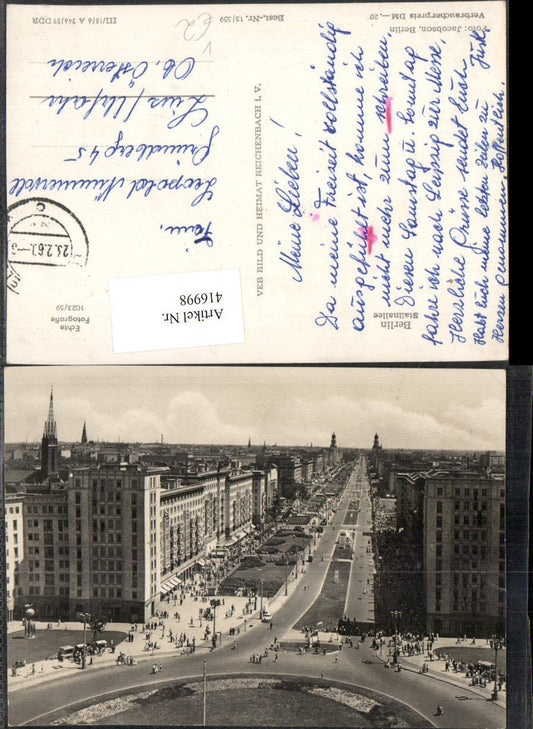 Meine Lieben!
Da meine Freizeit vollständig
ausgefüllt ist, komme ich
nicht mehr zum schreiben.
Diesen Samstag u. Sonntag
fahre ich nach Leipzig zur Messe.
Herzliche Grüsse sendet Euch
Habt euch meine letzten Zeilen zu
Herzen genommen. Hoffentlich.
Berlin
Stalinallee
VEB BILD UND HEIMAT REICHENBACH i. V.
Best.-Nr. 15/359
Foto: Jacobson, Berlin
Verbraucherpreis DM –,20
III/18/6 A 246/59 DDR
Echte
Fotografie
1023/59
Artikel Nr.
416998
Fam.
Leopold
Gründberg 45
Linz/Urfahr
Ob. Österreich